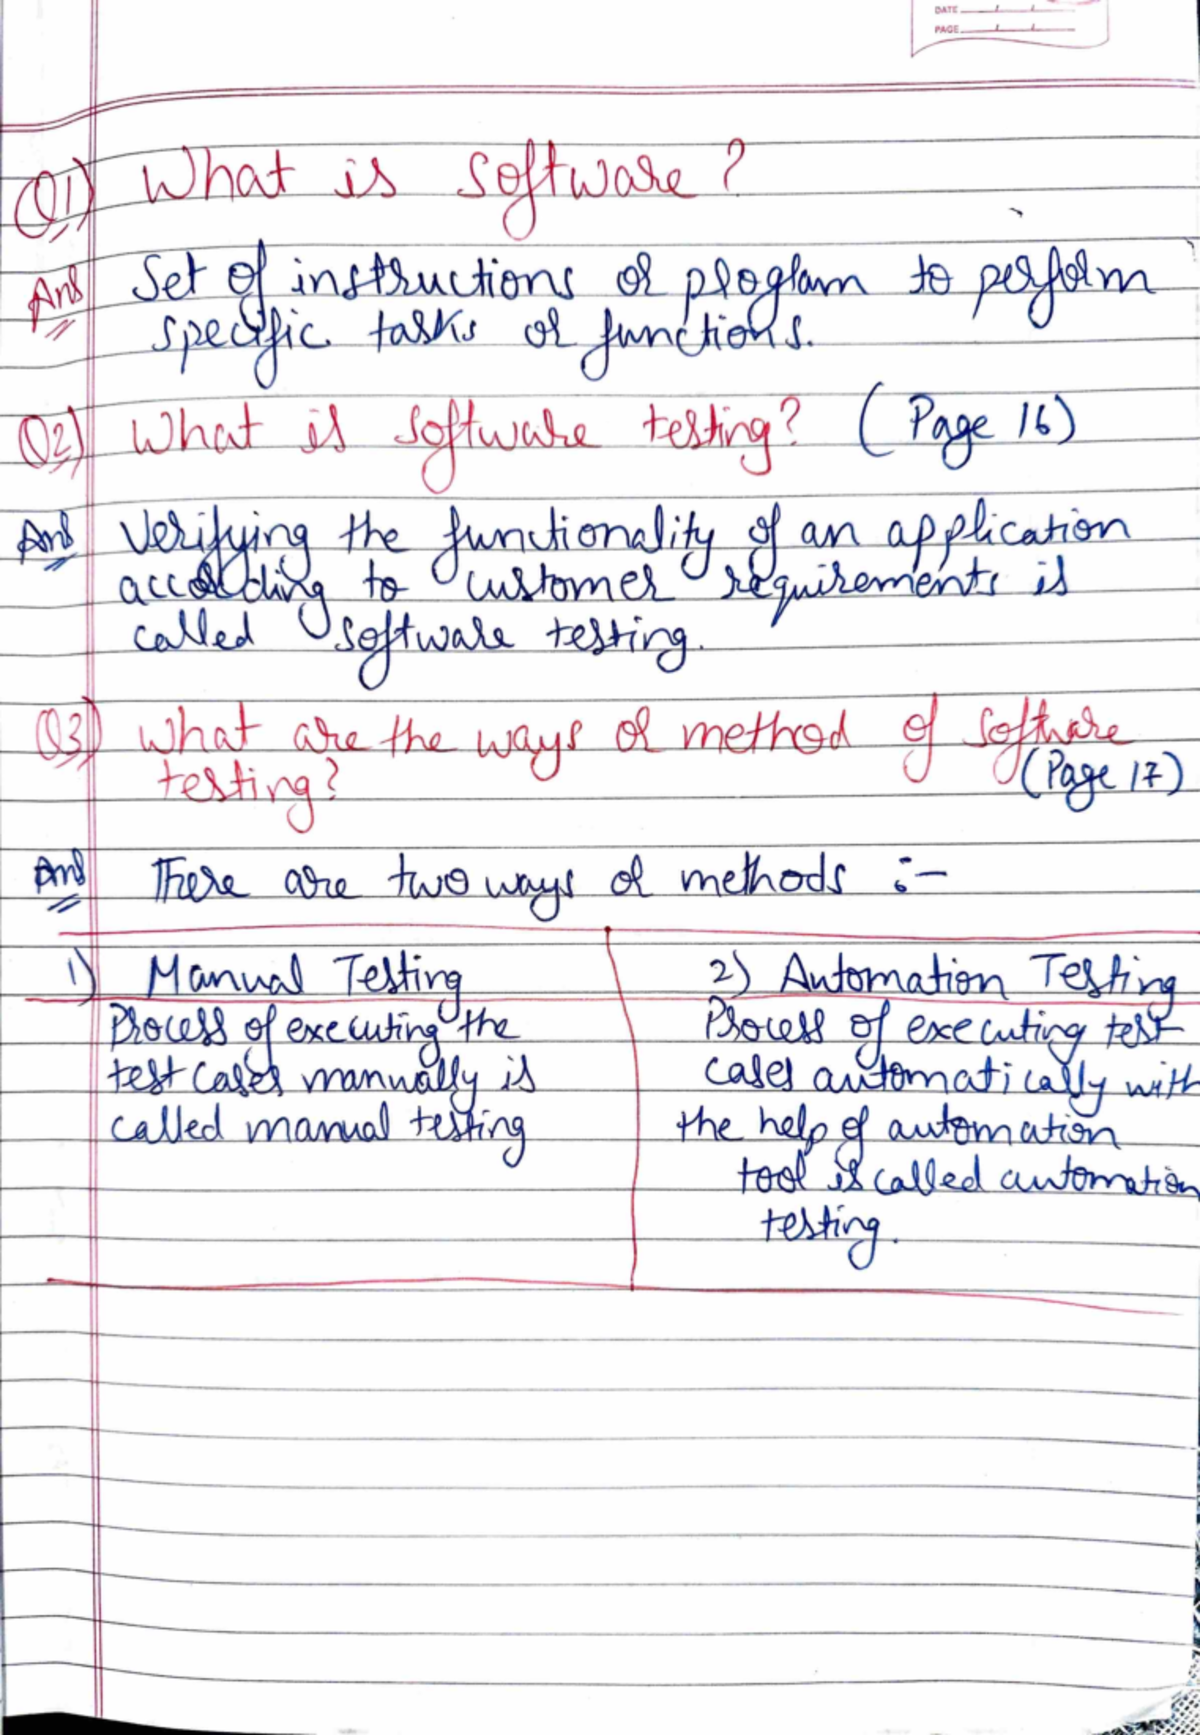 DATE
PAGE
Q1) What is software?
Ans Set of instructions or program to perform
specific tasks or functions.
Q2) What is software testing? (Page 16)
Ans Verifying the functionality of an application
according to customer requirements is
called software testing.
Q3) What are the ways or method of software
testing? (Page 17)
Ans There are two ways or methods :-
1) Manual Testing
Process of executing the
test cases manually is
called manual testing
2) Automation Testing
Process of executing test
cases automatically with
the help of automation
tool is called automation
testing.